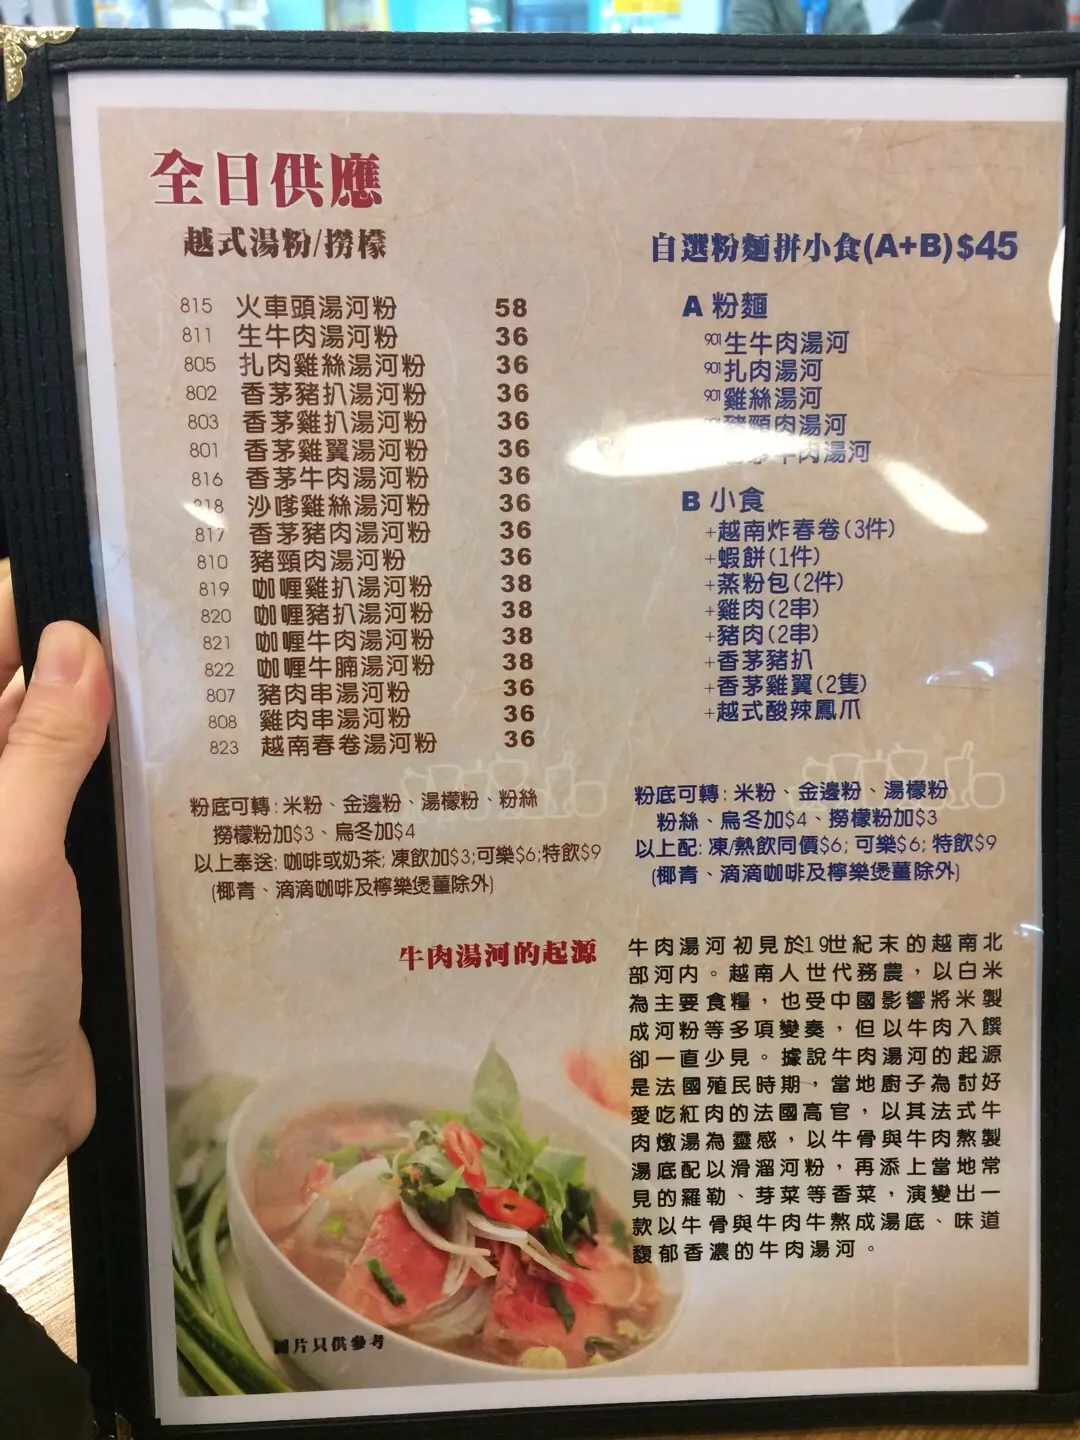 全日供應
越式湯粉/撈檬
815 火車頭湯河粉 58
811 生牛肉湯河粉 36
805 扎肉雞絲湯河粉 36
802 香茅豬扒湯河粉 36
803 香茅雞扒湯河粉 36
801 香茅雞翼湯河粉 36
816 香茅牛肉湯河粉 36
818 沙嗲雞絲湯河粉 36
817 香茅豬肉湯河粉 36
810 豬頸肉湯河粉 36
819 咖喱雞扒湯河粉 38
820 咖喱豬扒湯河粉 38
821 咖喱牛肉湯河粉 38
822 咖喱牛腩湯河粉 38
807 豬肉串湯河粉 36
808 雞肉串湯河粉 36
823 越南春卷湯河粉 36
粉底可轉: 米粉、金邊粉、湯檬粉、粉絲
撈檬粉加$3、烏冬加$4
以上奉送: 咖啡或奶茶; 凍飲加$3;可樂$6;特飲$9
(椰青、滴滴咖啡及檸樂煲薑除外)
自選粉麵拼小食(A+B)$45
A 粉麵
901 生牛肉湯河
901 扎肉湯河
901 雞絲湯河
豬頸肉湯河
牛肉湯河
B 小食
+越南炸春卷(3件)
+蝦餅(1件)
+蒸粉包(2件)
+雞肉(2串)
+豬肉(2串)
+香茅豬扒
+香茅雞翼(2隻)
+越式酸辣鳳爪
粉底可轉: 米粉、金邊粉、湯檬粉
粉絲、烏冬加$4、撈檬粉加$3
以上配: 凍/熱飲同價$6; 可樂$6; 特飲$9
(椰青、滴滴咖啡及檸樂煲薑除外)
牛肉湯河的起源
牛肉湯河初見於19世紀末的越南北
部河內。越南人世代務農，以白米
為主要食糧，也受中國影響將米製
成河粉等多項變奏，但以牛肉入饌
卻一直少見。據說牛肉湯河的起源
是法國殖民時期，當地廚子為討好
愛吃紅肉的法國高官，以其法式牛
肉燉湯為靈感，以牛骨與牛肉熬製
湯底配以滑溜河粉，再添上當地常
見的羅勒、芽菜等香菜，演變出一
款以牛骨與牛肉牛熬成湯底、味道
馥郁香濃的牛肉湯河。
圖片只供參考